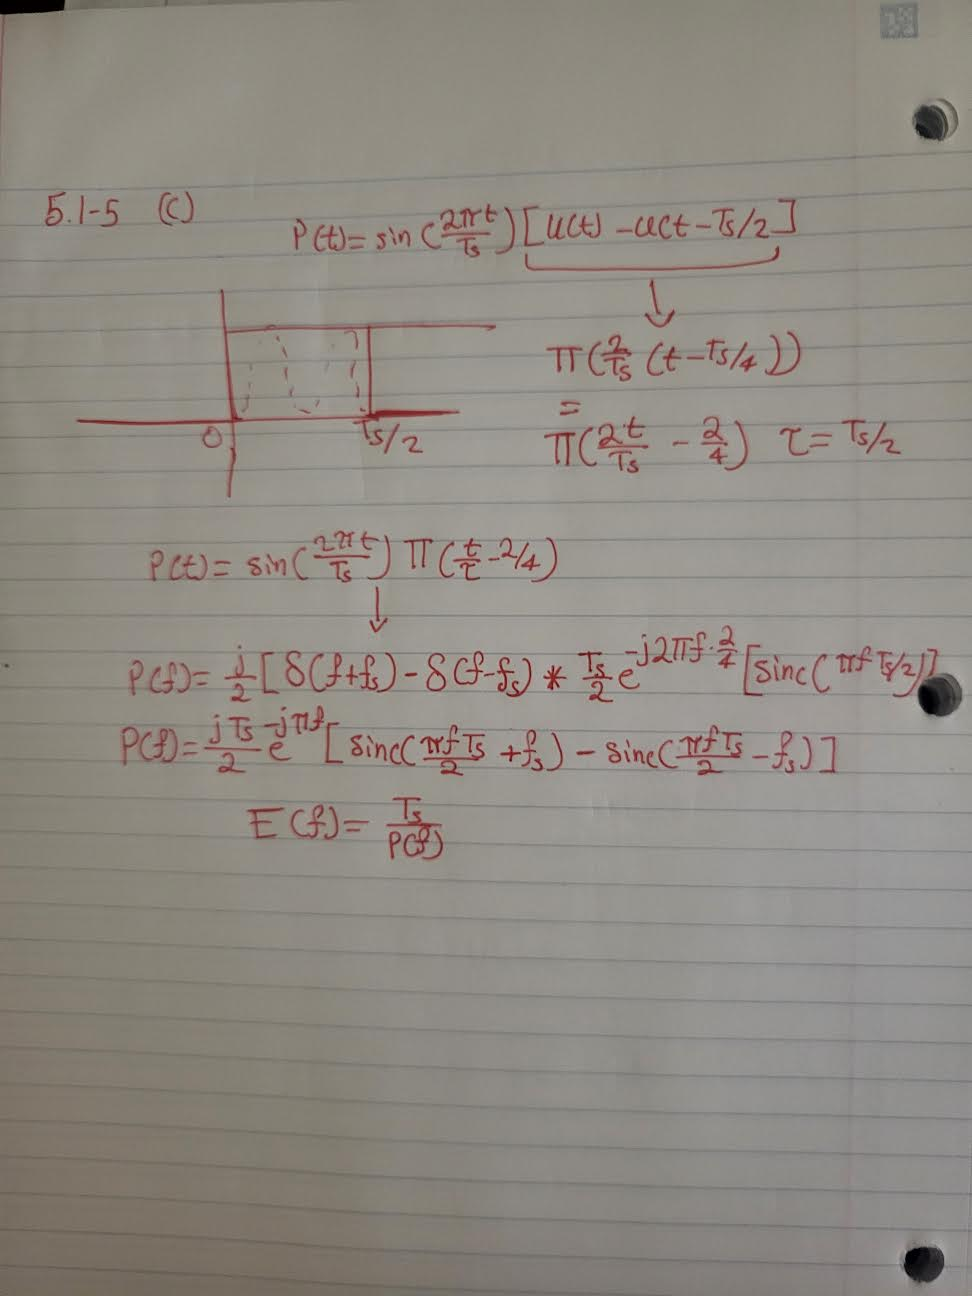 5.1-5 (c)
P(t)= sin(2πt/Ts)[u(t) -u(t-Ts/2]
Π(2/Ts (t-Ts/4))
=
Π(2t/Ts - 2/4) τ= Ts/2
0 Ts/2
P(t)= sin(2πt/Ts) Π(t/τ - 2/4)
P(f)= j/2 [δ(f+fs)-δ(f-fs) * Ts/2 e^-j2πf·2/4 [sinc(πf Ts/2)]
P(f)= jTs/2 e^-jπf [sinc(πfTs/2 +fs) - sinc(πfTs/2 -fs)]
E(f)= Ts/P(f)